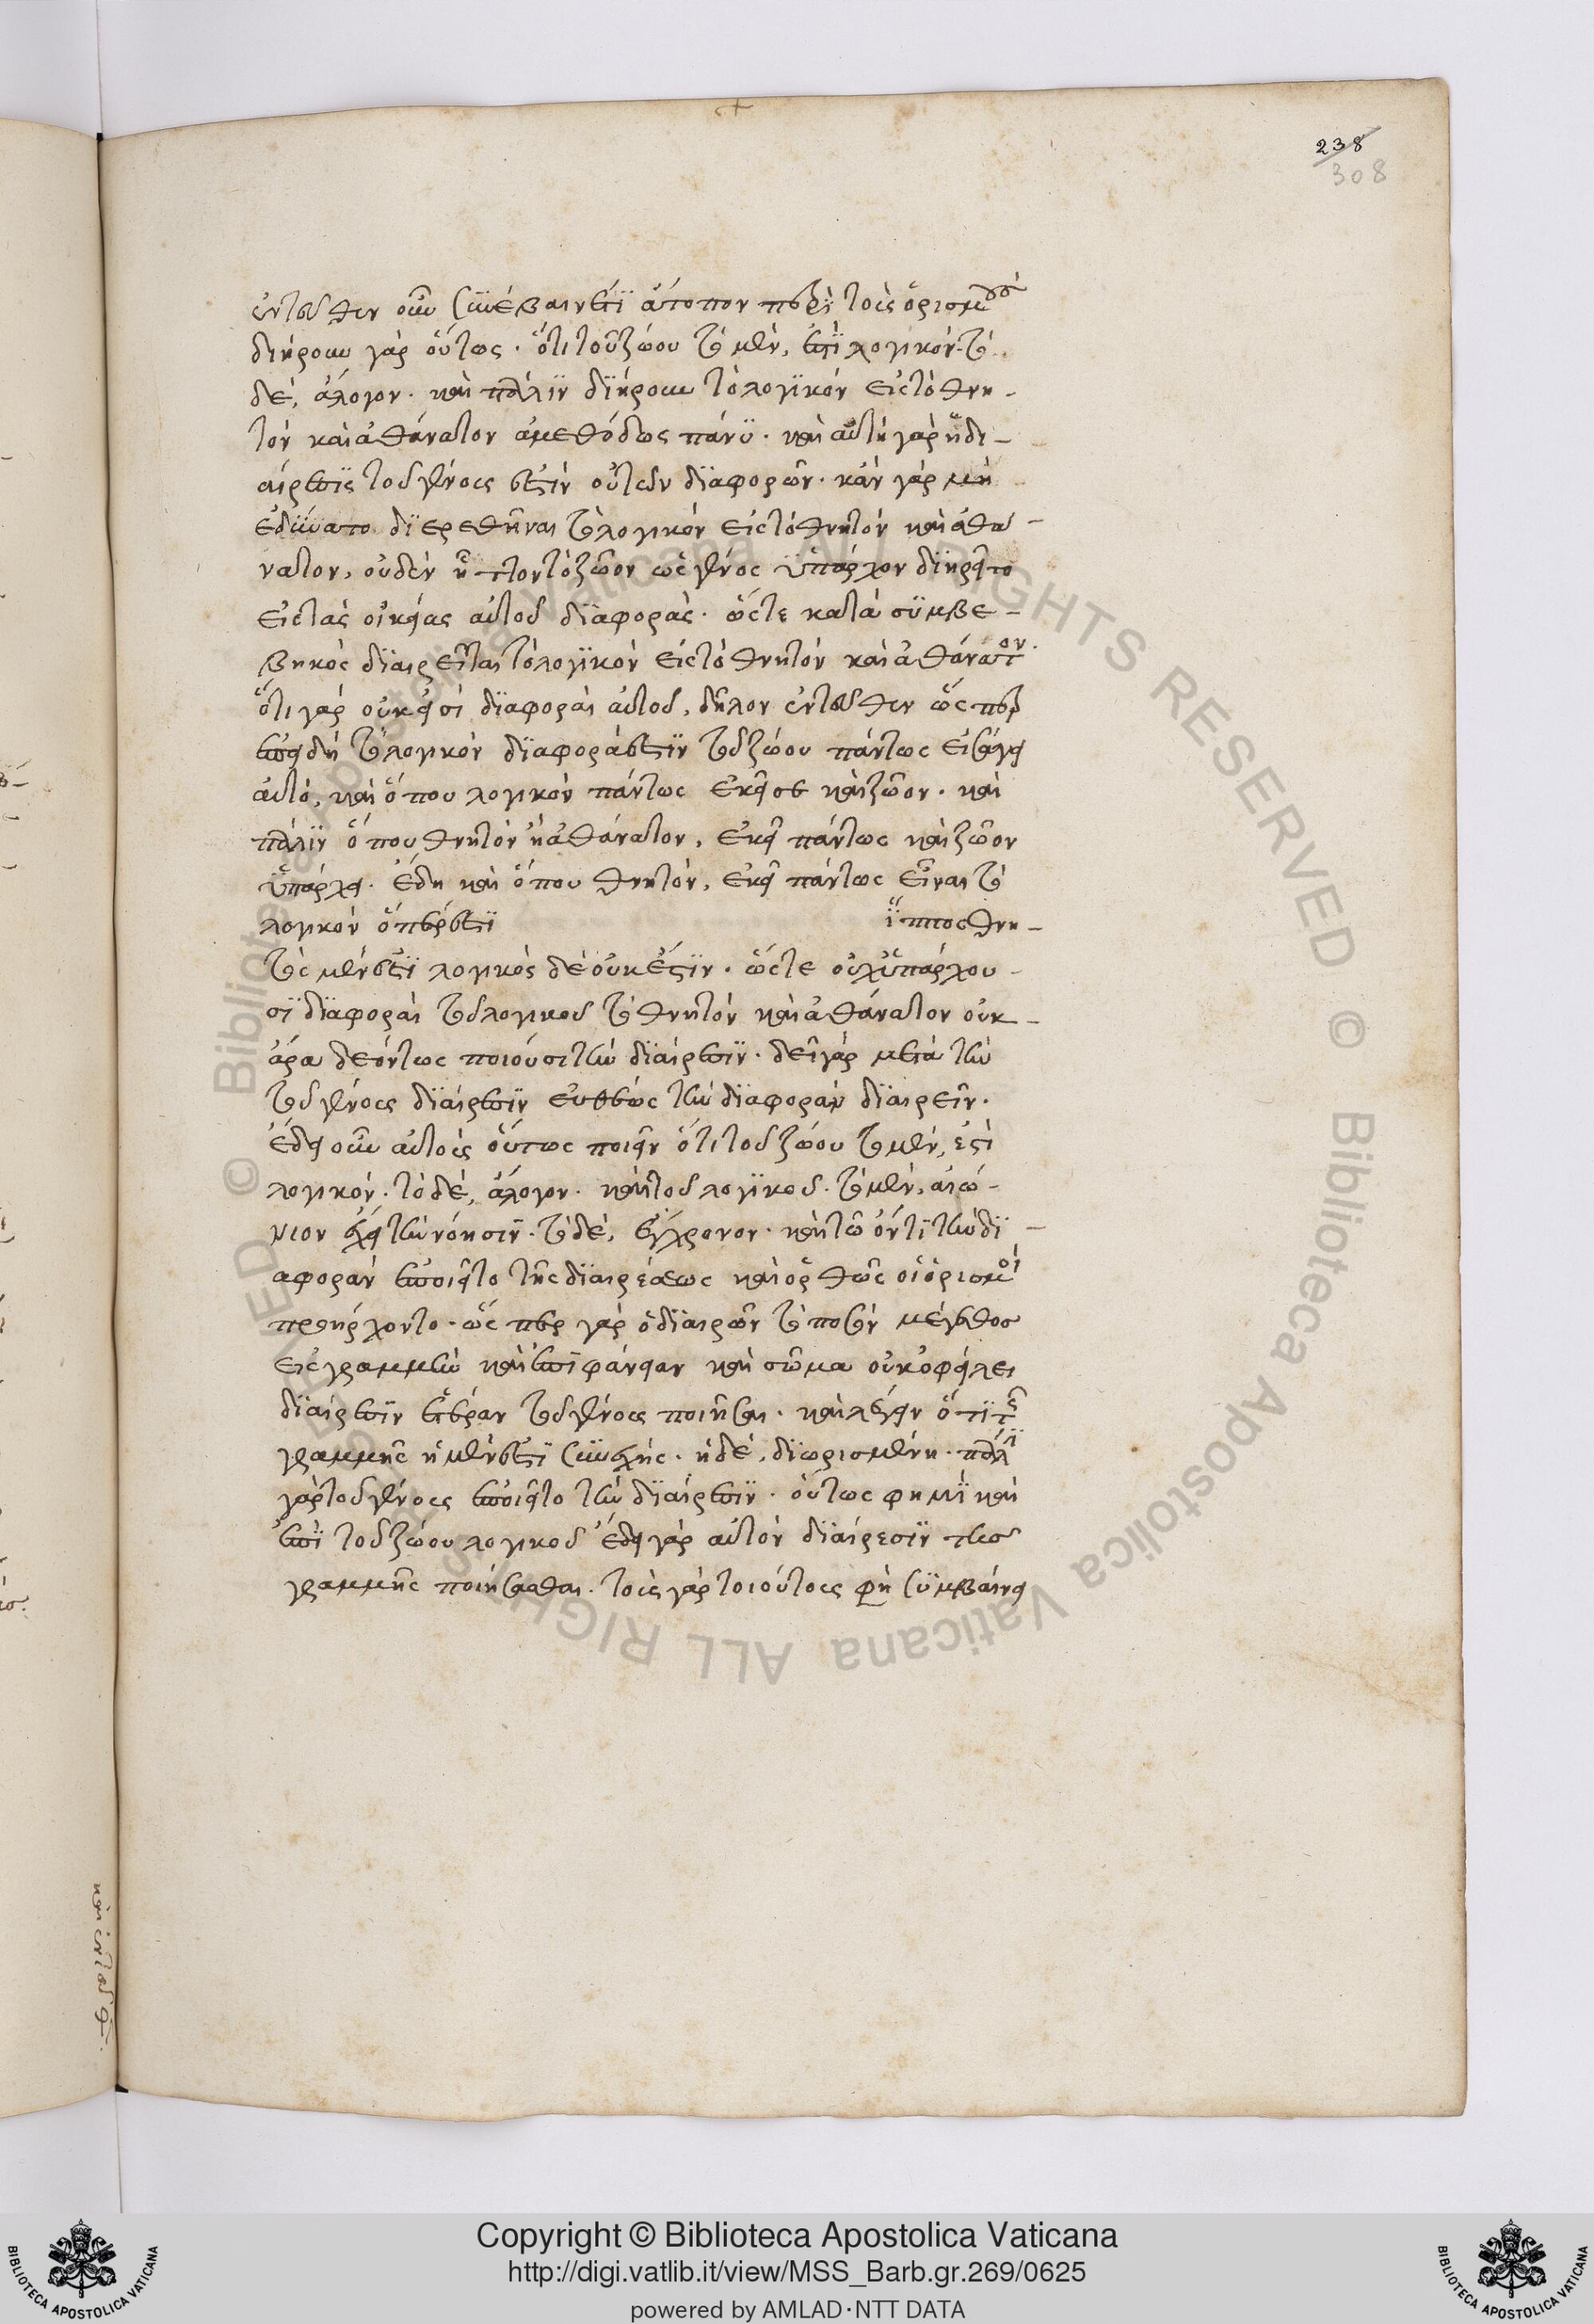 238
308
ἐντεῦθεν οὖν συνέβαινέ τι ἄτοπον περὶ τοὺς ὁρισμούς
διῄρουν γὰρ οὕτως · ὅτι τοῦ ζώου τὸ μὲν, ἐστὶ λογικόν · τὸ
δὲ, ἄλογον · καὶ πάλιν διῄρουν τὸ λογικόν εἰς τὸ θνη-
τὸν καὶ ἀθάνατον ἀμεθόδως πάνυ · καὶ αὐτὴ γὰρ ἡ δι-
αίρεσις τοῦ γένους ἐστὶν οὐ τῶν διαφορῶν · κἂν γὰρ μὴ
ἐδύνατο διερεθῆναι τὸ λογικόν εἰς τὸ θνητόν καὶ ἀθά-
νατον, οὐδὲν ἧττον τὸ ζῶον ὡς γένος ὑπάρχον διῃρεῖτο
εἰς τὰς οἰκείας αὐτοῦ διαφοράς · ὥστε κατὰ συμβε-
βηκὸς διαιρεῖται τὸ λογικόν εἰς τὸ θνητόν καὶ ἀθάνατον ·
ὅτι γὰρ οὐκ εἰσὶ διαφοραὶ αὐτοῦ, δῆλον ἐντεῦθεν ὥσπερ
ἐπειδὴ τὸ λογικόν διαφορά ἐστιν τοῦ ζώου πάντως εἰσάγει
αὐτό, καὶ ὅπου λογικὸν πάντως ἐκεῖσε καὶ ζῶον · καὶ
πάλιν ὅπου θνητὸν ἢ ἀθάνατον, ἐκεῖ πάντως καὶ ζῶον
ὑπάρχει · ἔδη καὶ ὅπου θνητὸν, ἐκεῖ πάντως εἶναι τὸ
λογικόν ὅπερ ἐστὶ ἵππος θνη-
τὸς μὲν ἐστὶ λογικὸς δὲ οὐκ ἔστιν · ὥστε οὐχ ὑπάρχου-
σι διαφοραὶ τοῦ λογικοῦ τὸ θνητὸν καὶ ἀθάνατον οὐκ-
άρα δεόντως ποιούσι τὴν διαίρεσιν · δεῖ γὰρ μετὰ τὴν
τοῦ γένους διαίρεσιν εὐθέως τὴν διαφορὰν διαιρεῖν ·
ἔδει οὖν αὐτοὺς οὕτως ποιεῖν ὅτι τοῦ ζώου τὸ μὲν, ἐστὶ
λογικόν · τὸ δὲ, ἄλογον · καὶ τοῦ λογικοῦ · τὸ μὲν, αἰώ-
νιον ἔχει τὴν νόησιν · τὸ δὲ, ἔγχρονον · καὶ τῷ ὄντι τὴν δι-
αφορὰν ἐποιεῖτο τῆς διαιρέσεως καὶ ὀρθῶς οἱ ὁρισμοὶ
προήρχοντο · ὥσπερ γὰρ ὁ διαιρῶν τὸ ποσὸν μέγεθος
εἰς γραμμὴν καὶ ἐπιφάνειαν καὶ σῶμα οὐκ ὀφείλει
διαίρεσιν ἑτέραν τοῦ γένους ποιῆσαι · καὶ λέγειν ὅτι τῆς
γραμμῆς ἡ μὲν ἐστὶ συνεχής · ἡ δὲ, διωρισμένη · πάλιν
γὰρ τοῦ γένους ἐποιεῖτο τὴν διαίρεσιν · οὕτως φημὶ καὶ
ἐπὶ τοῦ ζώου λογικοῦ ἔδει γὰρ αὐτὸν διαίρεσιν τῆς
γραμμῆς ποιήσασθαι · τοὺς γὰρ τοιούτους φη συμβαίνει
καὶ ἐντεῦθ.
Copyright © Biblioteca Apostolica Vaticana
http://digi.vatlib.it/view/MSS_Barb.gr.269/0625
powered by AMLAD·NTT DATA